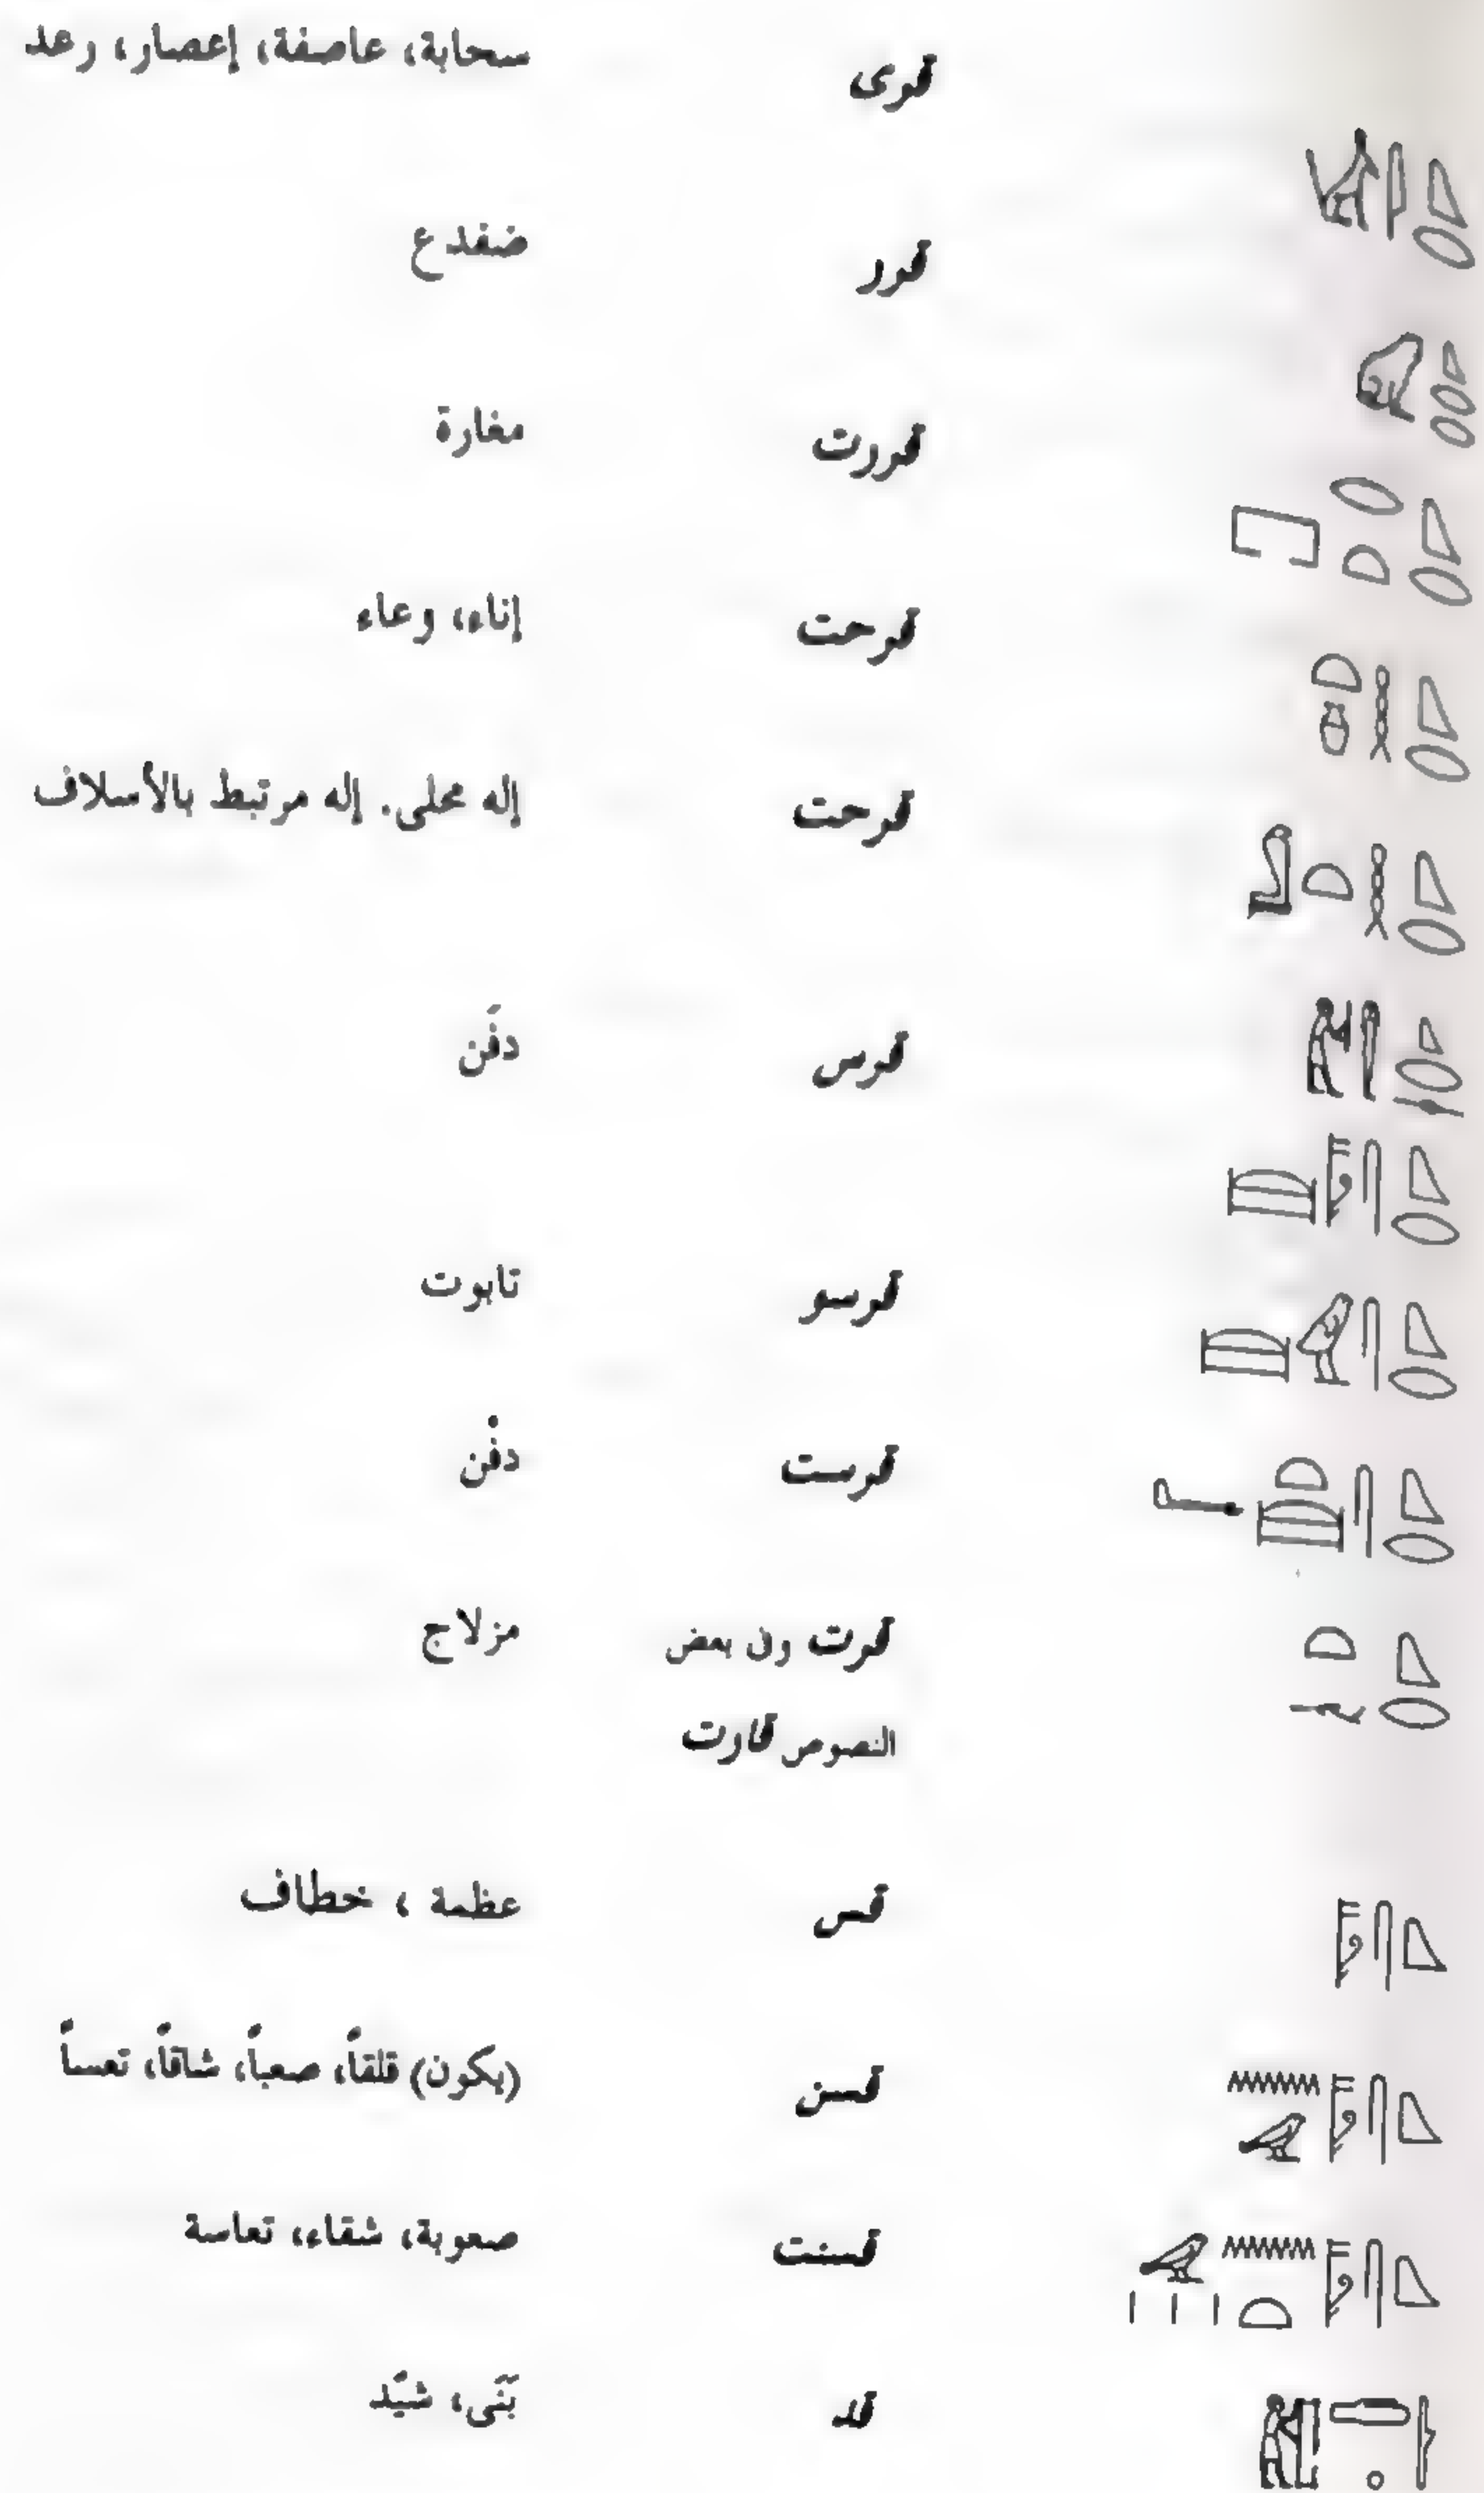 قرى سحابة، عاصفة، إعصار، رعد
قرر ضفدع
قررت مغارة
قرحت إناء، وعاء
قرحت إله محلى. إله مرتبط بالأسلاف
قرس دفَن
قرسو تابوت
قرست دفْن
قرت وفى بعض مزلاج
النصوص قارت
قس عظمة ، خطاف
قسن (يكون) قلقاً، صعباً، شاقاً، تعساً
قسنت صعوبة، شقاء، تعاسة
قد بَنَى، شيَّد